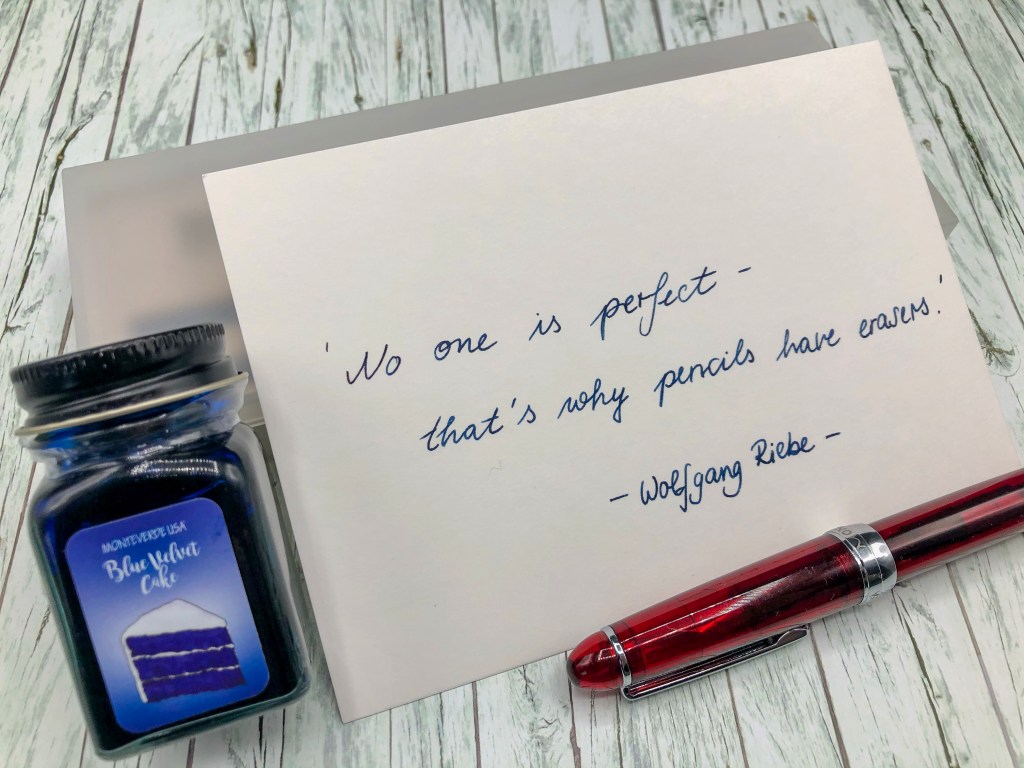 'No one is perfect -
that's why pencils have erasers!'
- Wolfgang Riebe -
MONTEVERDE USA
Blue Velvet
Cake